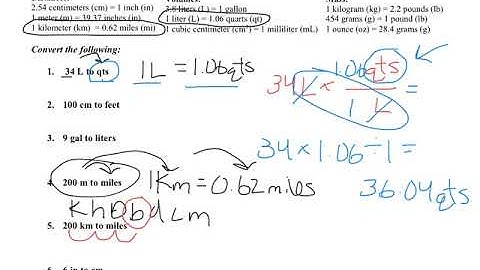 2.54 centimeters (cm) = 1 inch (in)
1 meter (m) = 39.37 inches (in)
1 kilometer (km) = 0.62 miles (mi)
3.8 liters (L) = 1 gallon
1 liter (L) = 1.06 quarts (qt)
1 cubic centimeter (cm³) = 1 milliliter (mL)
1 kilogram (kg) = 2.2 pounds (lb)
454 grams (g) = 1 pound (lb)
1 ounce (oz) = 28.4 grams (g)
Convert the following:
1. 34 L to qts
1L = 1.06qts
34L × 1.06qts =
1 L
2. 100 cm to feet
3. 9 gal to liters
34 × 1.06 ÷ 1 =
36.04 qts
4. 200 m to miles
1Km = 0.62 miles
K h D b d c m
5. 200 km to miles
6. 6 in to cm